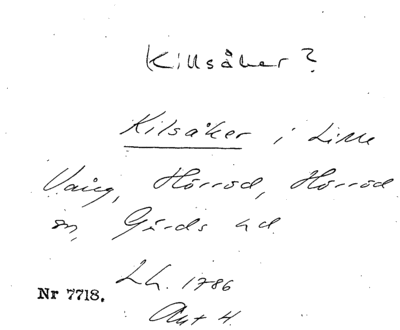 Killsåker?
Kilsåker i Lilla
Vång, Hörröd, Hörröd
sn, Gärds hd.
Lh. 1786
Nr 7718.
Akt 4.